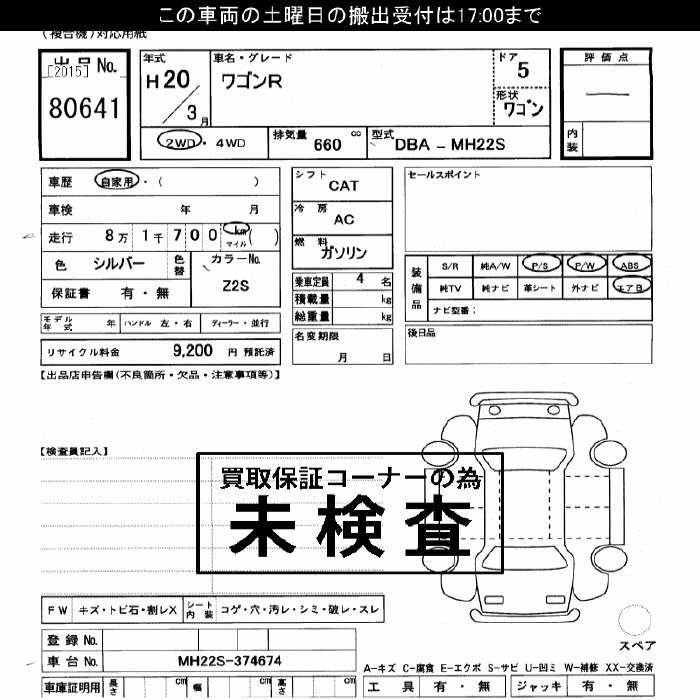 この車両の土曜日の搬出受付は17:00まで
(複合機)対応用紙
出品 No.
[2015]
80641
年式
H20/3月
車名・グレード
ワゴンR
ドア
5
形状
ワゴン
評価点
—
内装
2WD・4WD
排気量 660 cc
型式 DBA－MH22S
車歴 自家用・( )
車検 年 月
走行 8万1千700 km マイル ( )
色 シルバー
色替
カラーNo.
Z2S
保証書 有・無
シフト
CAT
冷房
AC
燃料
ガソリン
乗車定員 4 名
積載量 kg
総重量 kg
セールスポイント
装備品
S/R 純A/W P/S P/W ABS
純TV 純ナビ 革シート 外ナビ エアB
ナビ型番：
モデル年式 年 ハンドル 左・右 ディーラー・並行
名変期限
月 日
後日品
リサイクル料金 9,200 円 預託済
【出品店申告欄(不良箇所・欠品・注意事項等)】
【検査員記入】
買取保証コーナーの為
未検査
FW キズ・トビ石・割レX シート内装 コゲ・穴・汚レ・シミ・破レ・スレ
登録 No.
車台 No. MH22S-374674
スペア
A-キズ C-腐食 E-エクボ S-サビ U-凹ミ W-補修 XX-交換済
車庫証明用 長さ cm 幅 cm 高さ cm
工具 有・無 ジャッキ 有・無